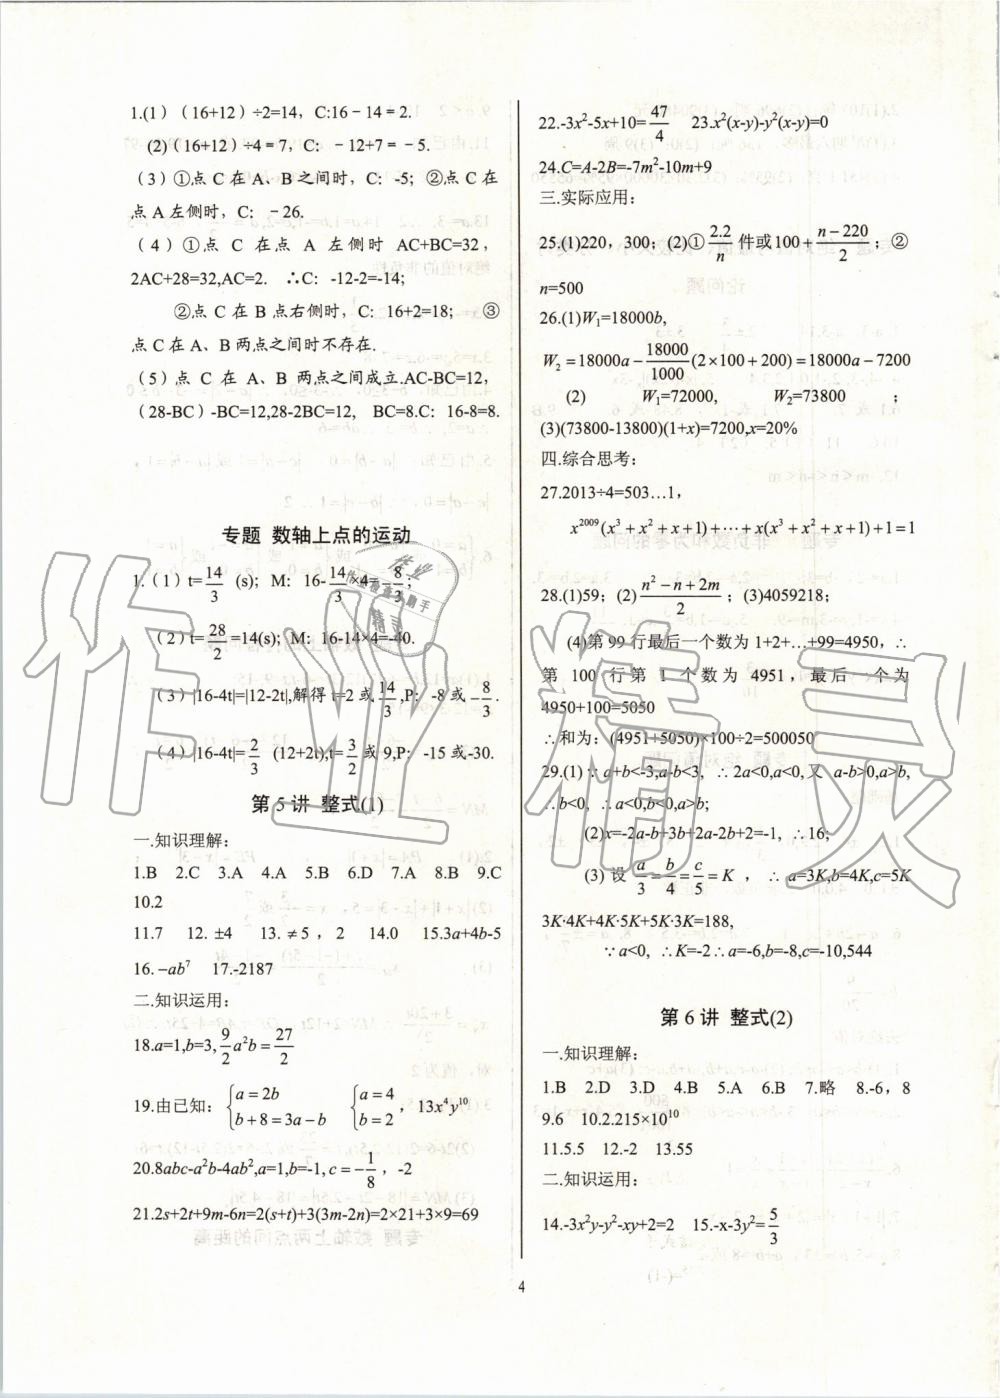 1.(1)（16+12）÷2=14，C:16－14＝2.
(2)（16+12）÷4＝7，C: －12+7＝－5.
（3）①点 C 在 A、B 之间时，C: -5；②点 C 在
点 A 左侧时，C: －26.
（4）①点 C 在点 A 左侧时 AC+BC=32，
2AC+28=32,AC=2. ∴C: -12-2=-14;
②点 C 在 B 点右侧时，C: 16+2=18; ③
点 C 在 A、B 两点之间时不存在.
（5）点 C 在 A、B 两点之间成立.AC-BC=12，
（28-BC）-BC=12,28-2BC=12, BC=8.C: 16-8=8.
专题 数轴上点的运动
1.（1）t=14/3 (s); M: 16-14/3×4=-8/3;
（2）t=28/2=14(s); M: 16-14×4=-40.
（3）|16-4t|=|12-2t|,解得 t=2 或14/3,P: -8或-8/3.
（4）|16-4t|=2/3 (12+2t),t=3/2 或 9,P: -15 或-30.
第 5 讲 整式(1)
一.知识理解:
1.B 2.C 3.A 4.A 5.B 6.D 7.A 8.B 9.C
10.2
11.7 12. ±4 13. ≠5，2 14.0 15.3a+4b-5
16. -ab⁷ 17.-2187
二.知识运用:
18.a=1,b=3, 9/2 a²b = 27/2
19.由已知: {a=2b b+8=3a-b {a=4 b=2, 13x⁴y¹⁰
20.8abc-a²b-4ab²,a=1,b=-1, c=-1/8, -2
21.2s+2t+9m-6n=2(s+t)+3(3m-2n)=2×21+3×9=69
22.-3x²-5x+10=47/4 23.x²(x-y)-y²(x-y)=0
24.C=A-2B=-7m²-10m+9
三.实际应用:
25.(1)220，300；(2)①2.2/n 件或100+(n-220)/2；②
n=500
26.(1)W₁=18000b,
W₂=18000a-18000/1000(2×100+200)=18000a-7200
(2) W₁=72000, W₂=73800 ;
(3)(73800-13800)(1+x)=7200,x=20%
四.综合思考:
27.2013÷4=503…1，
x²⁰⁰⁹(x³+x²+x+1)+⋯+x(x³+x²+x+1)+1=1
28.(1)59；(2)(n²-n+2m)/2；(3)4059218；
(4)第 99 行最后一个数为 1+2+…+99=4950，∴
第 100 行第 1 个数为 4951，最后一个为
4950+100=5050
∴和为：(4951+5050)×100÷2=500050
29.(1)∵a+b<-3,a-b<3, ∴2a<0,a<0,又 a-b>0,a>b,
∴b<0, ∴a<0,b<0,a>b;
(2)x=-2a-b+3b+2a-2b+2=-1, ∴16;
(3)设 a/3=b/4=c/5=K，∴a=3K,b=4K,c=5K
3K·4K+4K·5K+5K·3K=188,
∵a<0, ∴K=-2∴a=-6,b=-8,c=-10,544
第 6 讲 整式(2)
一.知识理解:
1.B 2.D 3.D 4.B 5.A 6.B 7.略 8.-6，8
9.6 10.2.215×10¹⁰
11.5.5 12.-2 13.55
二.知识运用:
14.-3x²y-y²-xy+2=2 15.-x-3y²=5/3
4
作业精灵